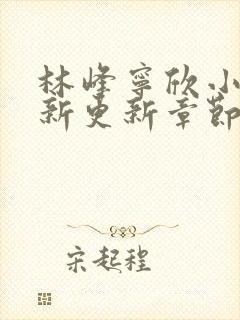 林峰寧欣小
新更新章節
宋起程